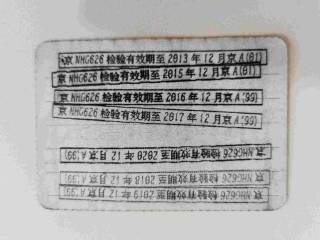 京NHG626 检验有效期至2013年12月京A(01)
京NHG626 检验有效期至2015年12月京A(01)
京NHG626 检验有效期至2016年12月京A(99)
京NHG626 检验有效期至2017年12月京A(99)
京NHG626 检验有效期至2020年12月京A(99)
京NHG626 检验有效期至2018年12月京A(99)
京NHG626 检验有效期至2019年12月京A(99)